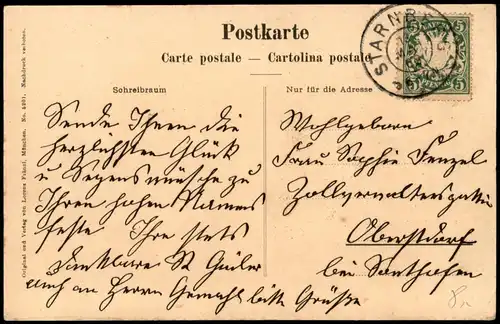 Postkarte
Carte postale — Cartolina postale
STARNB
5 5
5 5
Schreibraum
Nur für die Adresse
Original und Verlag von Lorenz Fränzl, München. No. 4201. Nachdruck verboten.
Sende Ihnen die
herzlichsten Glück
u Segenswünsche zu
Ihrem hohen Namens
feste Ihre stets
dankbare St
auch an Herrn Gemahl bitte Grüße
Wohlgeboren
Frau Sophie Fenzel
Zollverwaltersgattin
Oberstdorf
bei Sonthofen